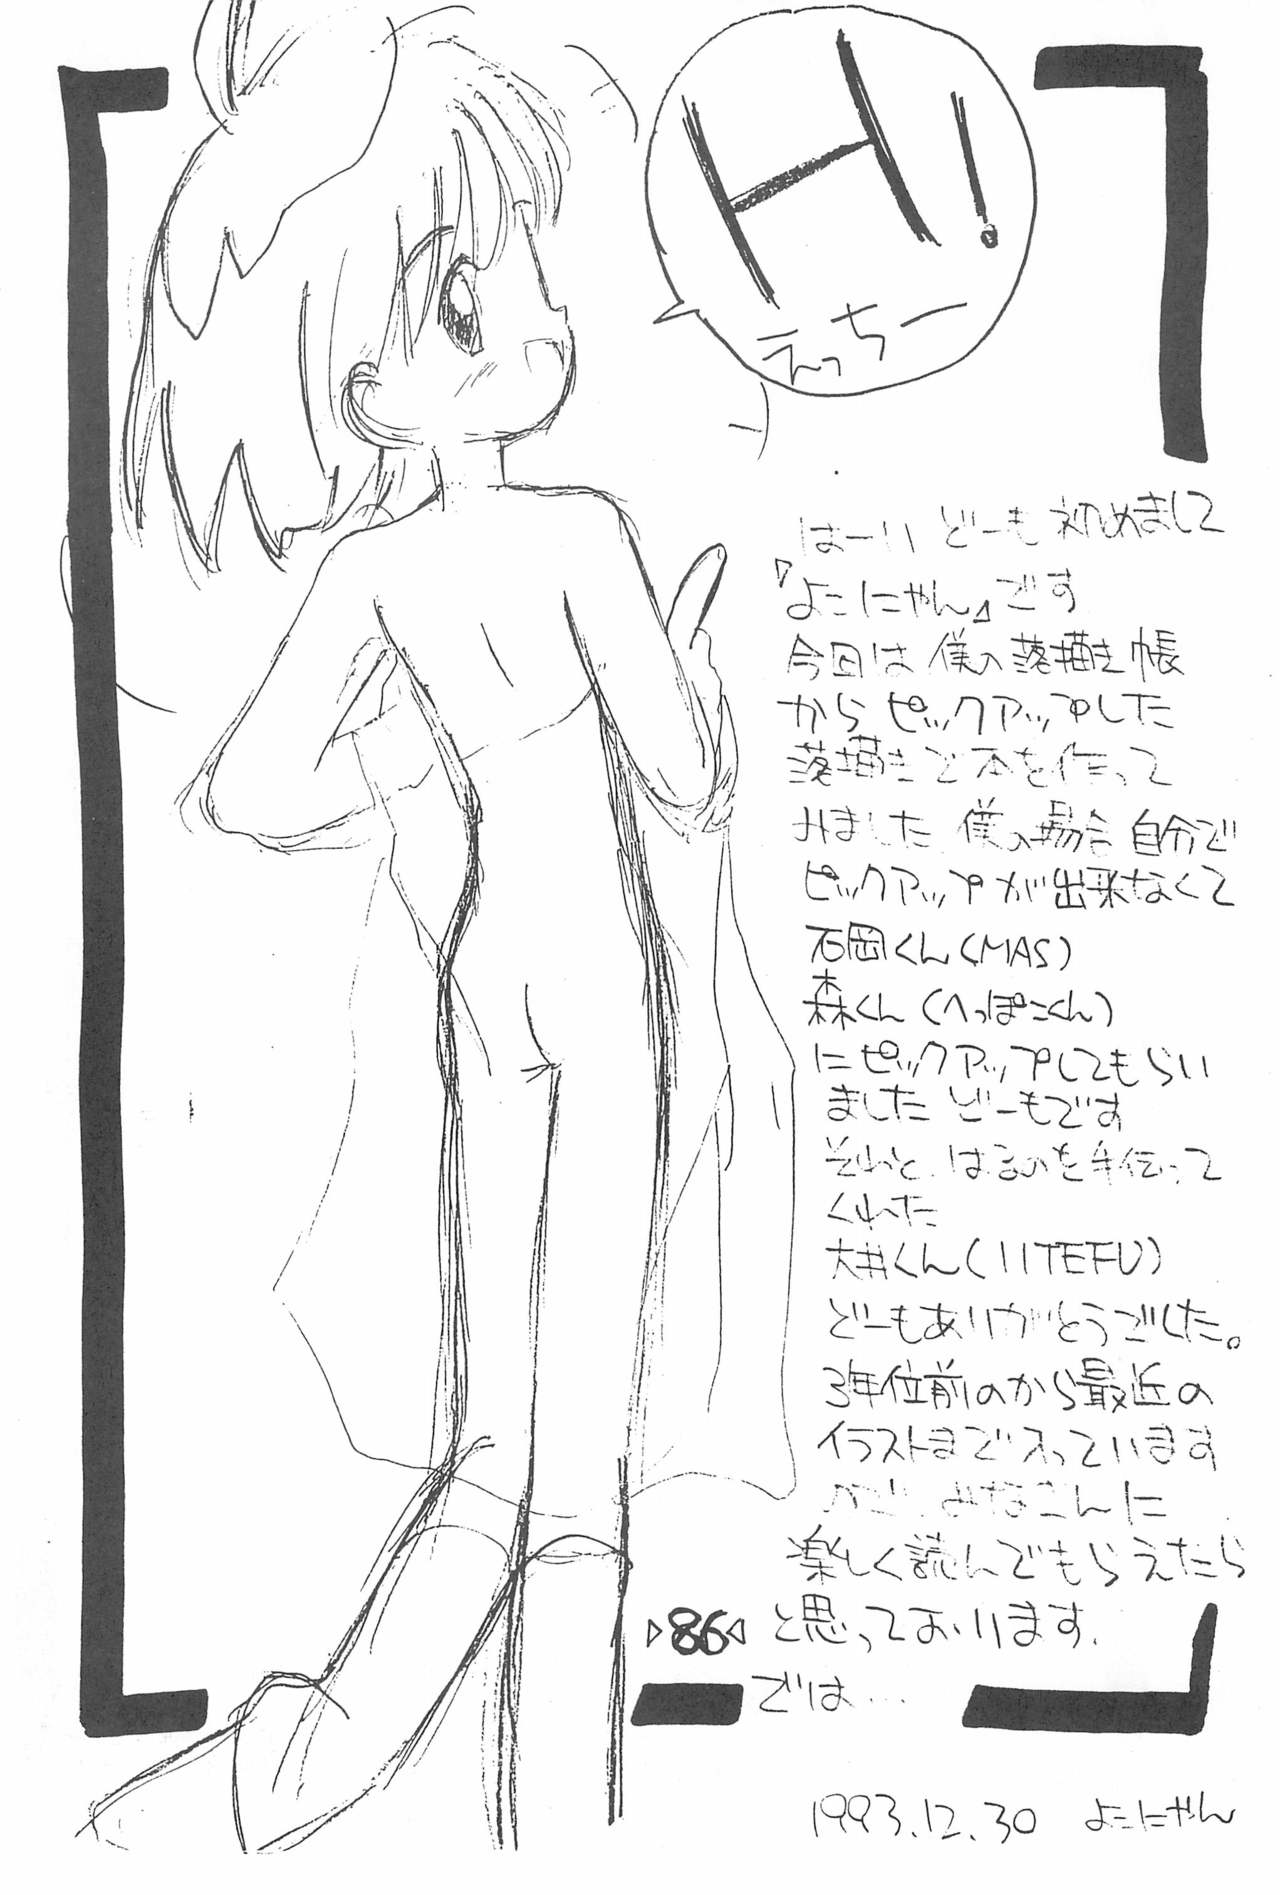 H!
えっちー
はーい どーも 初めまして
『よこにゃん』です
今回は 僕の落描き帳
から ピックアップした
落描きで本を作って
みました 僕の場合 自分で
ピックアップが出来なくて
石岡くん(MAS)
森くん(へっぽこくん)
にピックアップしてもらい
ました どーもです
それと はるのを手伝って
くれた
大井くん(IITEFU)
どーもありがとうごした。
3年位前のから最近の
イラストまで入っています
みなさんに
楽しく読んでもらえたら
と思っております.
▷86◁
では…
1993.12.30 よこにゃん